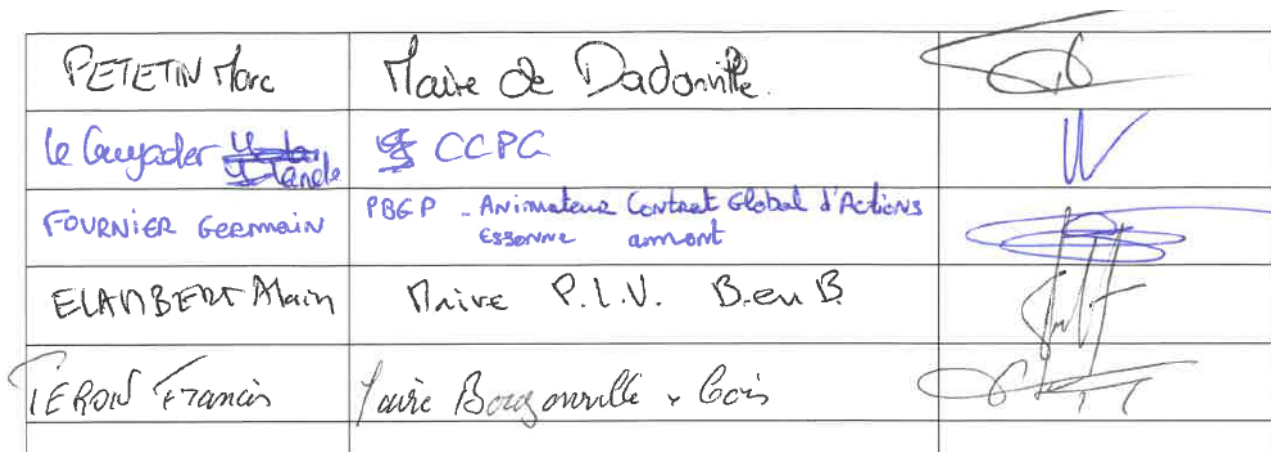 PETETIN Marc Maire de Dadonville.
Le Guyader CCPG
FOURNIER Germain PBGP - Animateur Contrat Global d'Actions
Essonne amont
ELAMBERT Alain Maire P.L.V. B.en B.
Francis Maire Bouzonville Bois